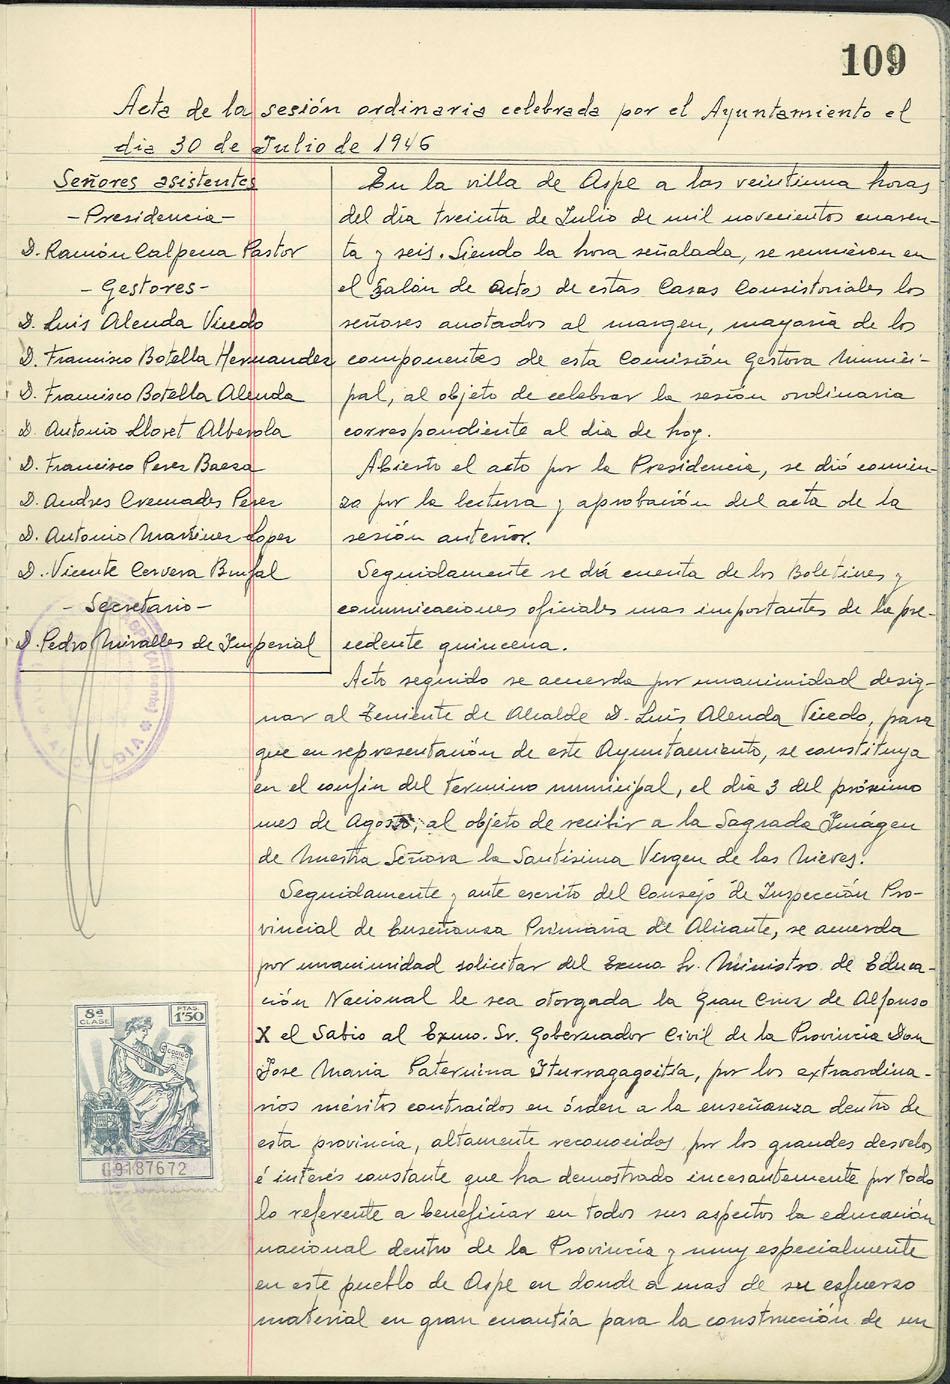 109
Acta de la sesión ordinaria celebrada por el Ayuntamiento el
dia 30 de Julio de 1946
Señores asistentes
-Presidencia-
D. Ramón Calpena Pastor
-Gestores-
D. Luis Alenda Vicedo
D. Francisco Botella Hernandez
D. Francisco Botella Alenda
D. Antonio Lloret Alberola
D. Francisco Perez Baeza
D. Andres Cremades Perez
D. Antonio Martinez Lopez
D. Vicente Cervera Buyal
-Secretario-
D. Pedro Miralles de Imperial
En la villa de Aspe a las veintiuna horas
del día treinta de Julio de mil novecientos cuaren-
ta y seis. Siendo la hora señalada, se reunieron en
el Salón de actos de estas Casas Consistoriales los
señores anotados al margen, mayoría de los
componentes de esta Comisión Gestora Munici-
pal, al objeto de celebrar la sesión ordinaria
correspondiente al dia de hoy.
Abierto el acto por la Presidencia, se dió comien-
zo por la lectura y aprobación del acta de la
sesión anterior.
Seguidamente se dá cuenta de los Boletines y
comunicaciones oficiales mas importantes de la pre-
cedente quincena.
Acto seguido se acuerda por unanimidad desig-
nar al Teniente de Alcalde D. Luis Alenda Vicedo, para
que en representación de este Ayuntamiento, se constituya
en el confin del termino municipal, el dia 3 del próximo
mes de Agosto, al objeto de recibir a la Sagrada Imágen
de Nuestra Señora la Santisima Virgen de las Nieves.
Seguidamente y ante escrito del Consejo de Inspección Pro-
vincial de Enseñanza Primaria de Alicante, se acuerda
por unanimidad solicitar del Exmo Sr. Ministro de Educa-
ción Nacional le sea otorgada la Gran Cruz de Alfonso
X el Sabio al Exmo. Sr. Gobernador Civil de la Provincia Don
Jose Maria Paternina Iturragagoitia, por los extraordina-
rios méritos contraidos en órden a la enseñanza dentro de
esta provincia, altamente reconocidos por los grandes desvelos
é interés constante que ha demostrado incesantemente por todo
lo referente a beneficiar en todos sus aspectos la educación
nacional dentro de la Provincia y muy especialmente
en este pueblo de Aspe en donde a mas de su esfuerzo
material en gran cuantía para la construcción de un
8ª CLASE
PTAS 1'50
CODIGO
G9187672
ALCALDIA